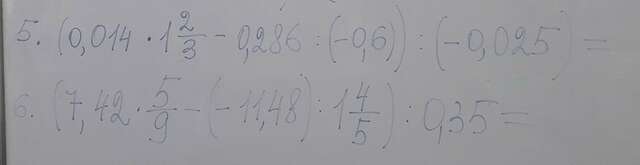 5. (0,014 · 1 2/3 - 0,286 : (-0,6)) : (-0,025) =
6. (7,42 · 5/9 - (-11,48) : 1 4/5) : 0,35 =